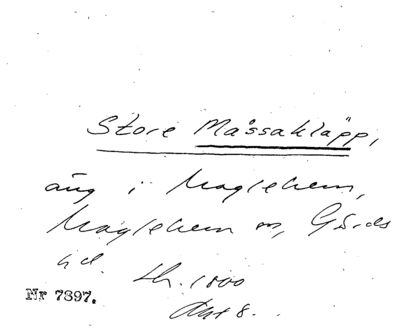 Store Måssakläpp,
äng i Maglehem,
Maglehem sn, Gärds
hd. 1800
Nr 7897.
8.